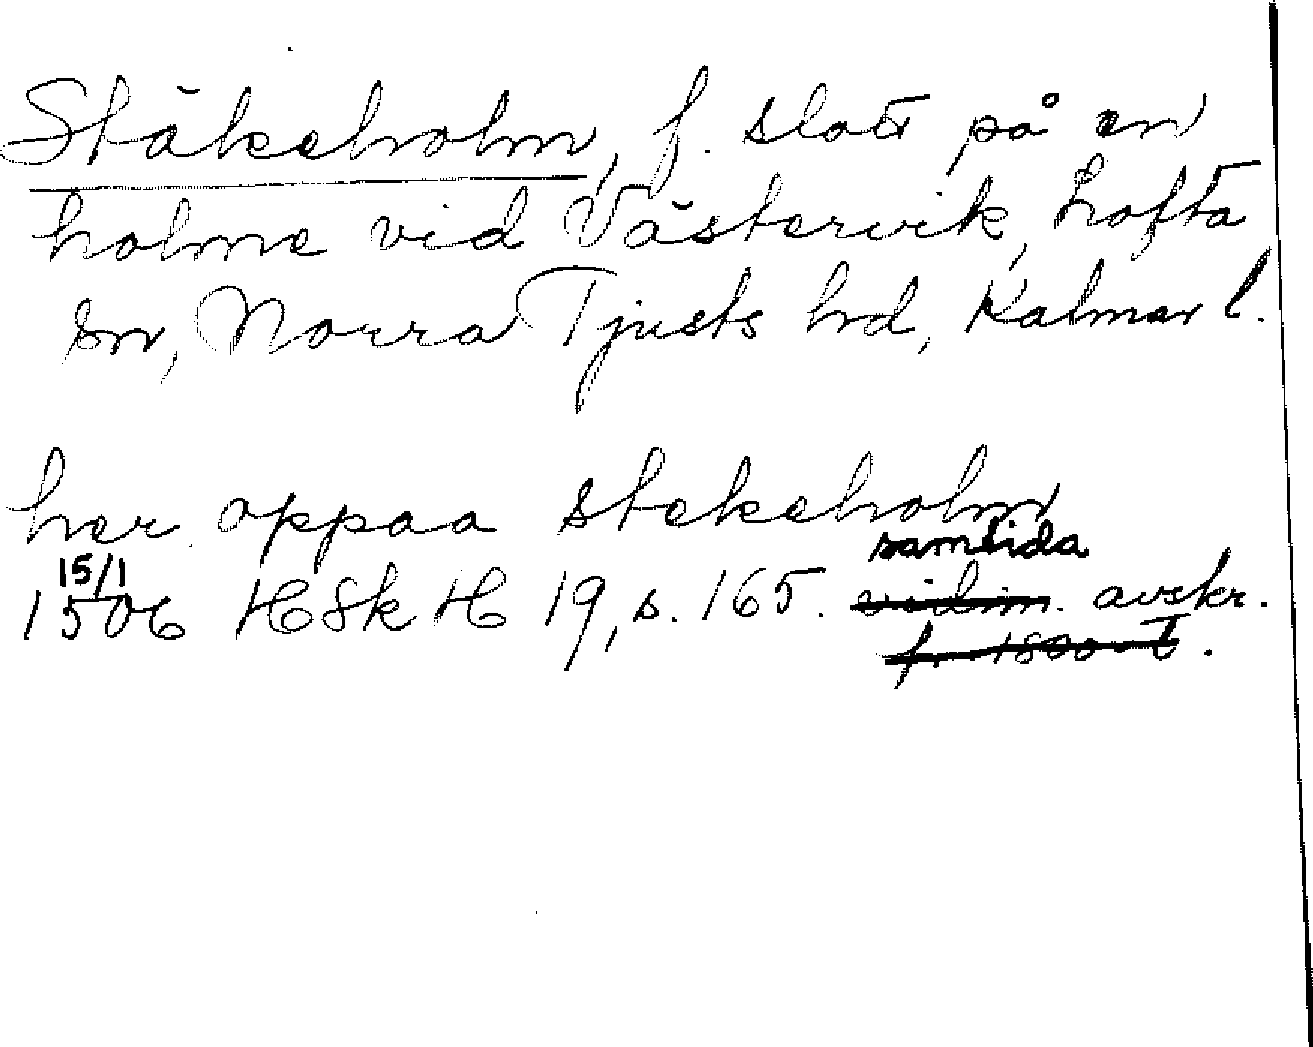 Stäkeholm, f. slott på en
holme vid Västervik, Lofta
sn, Norra Tjusts hd, Kalmar l.
her oppaa stekeholm
15/1
samtida
1506 HSkH 19, s. 165. vidim. avskr.
fr. 1800-t.